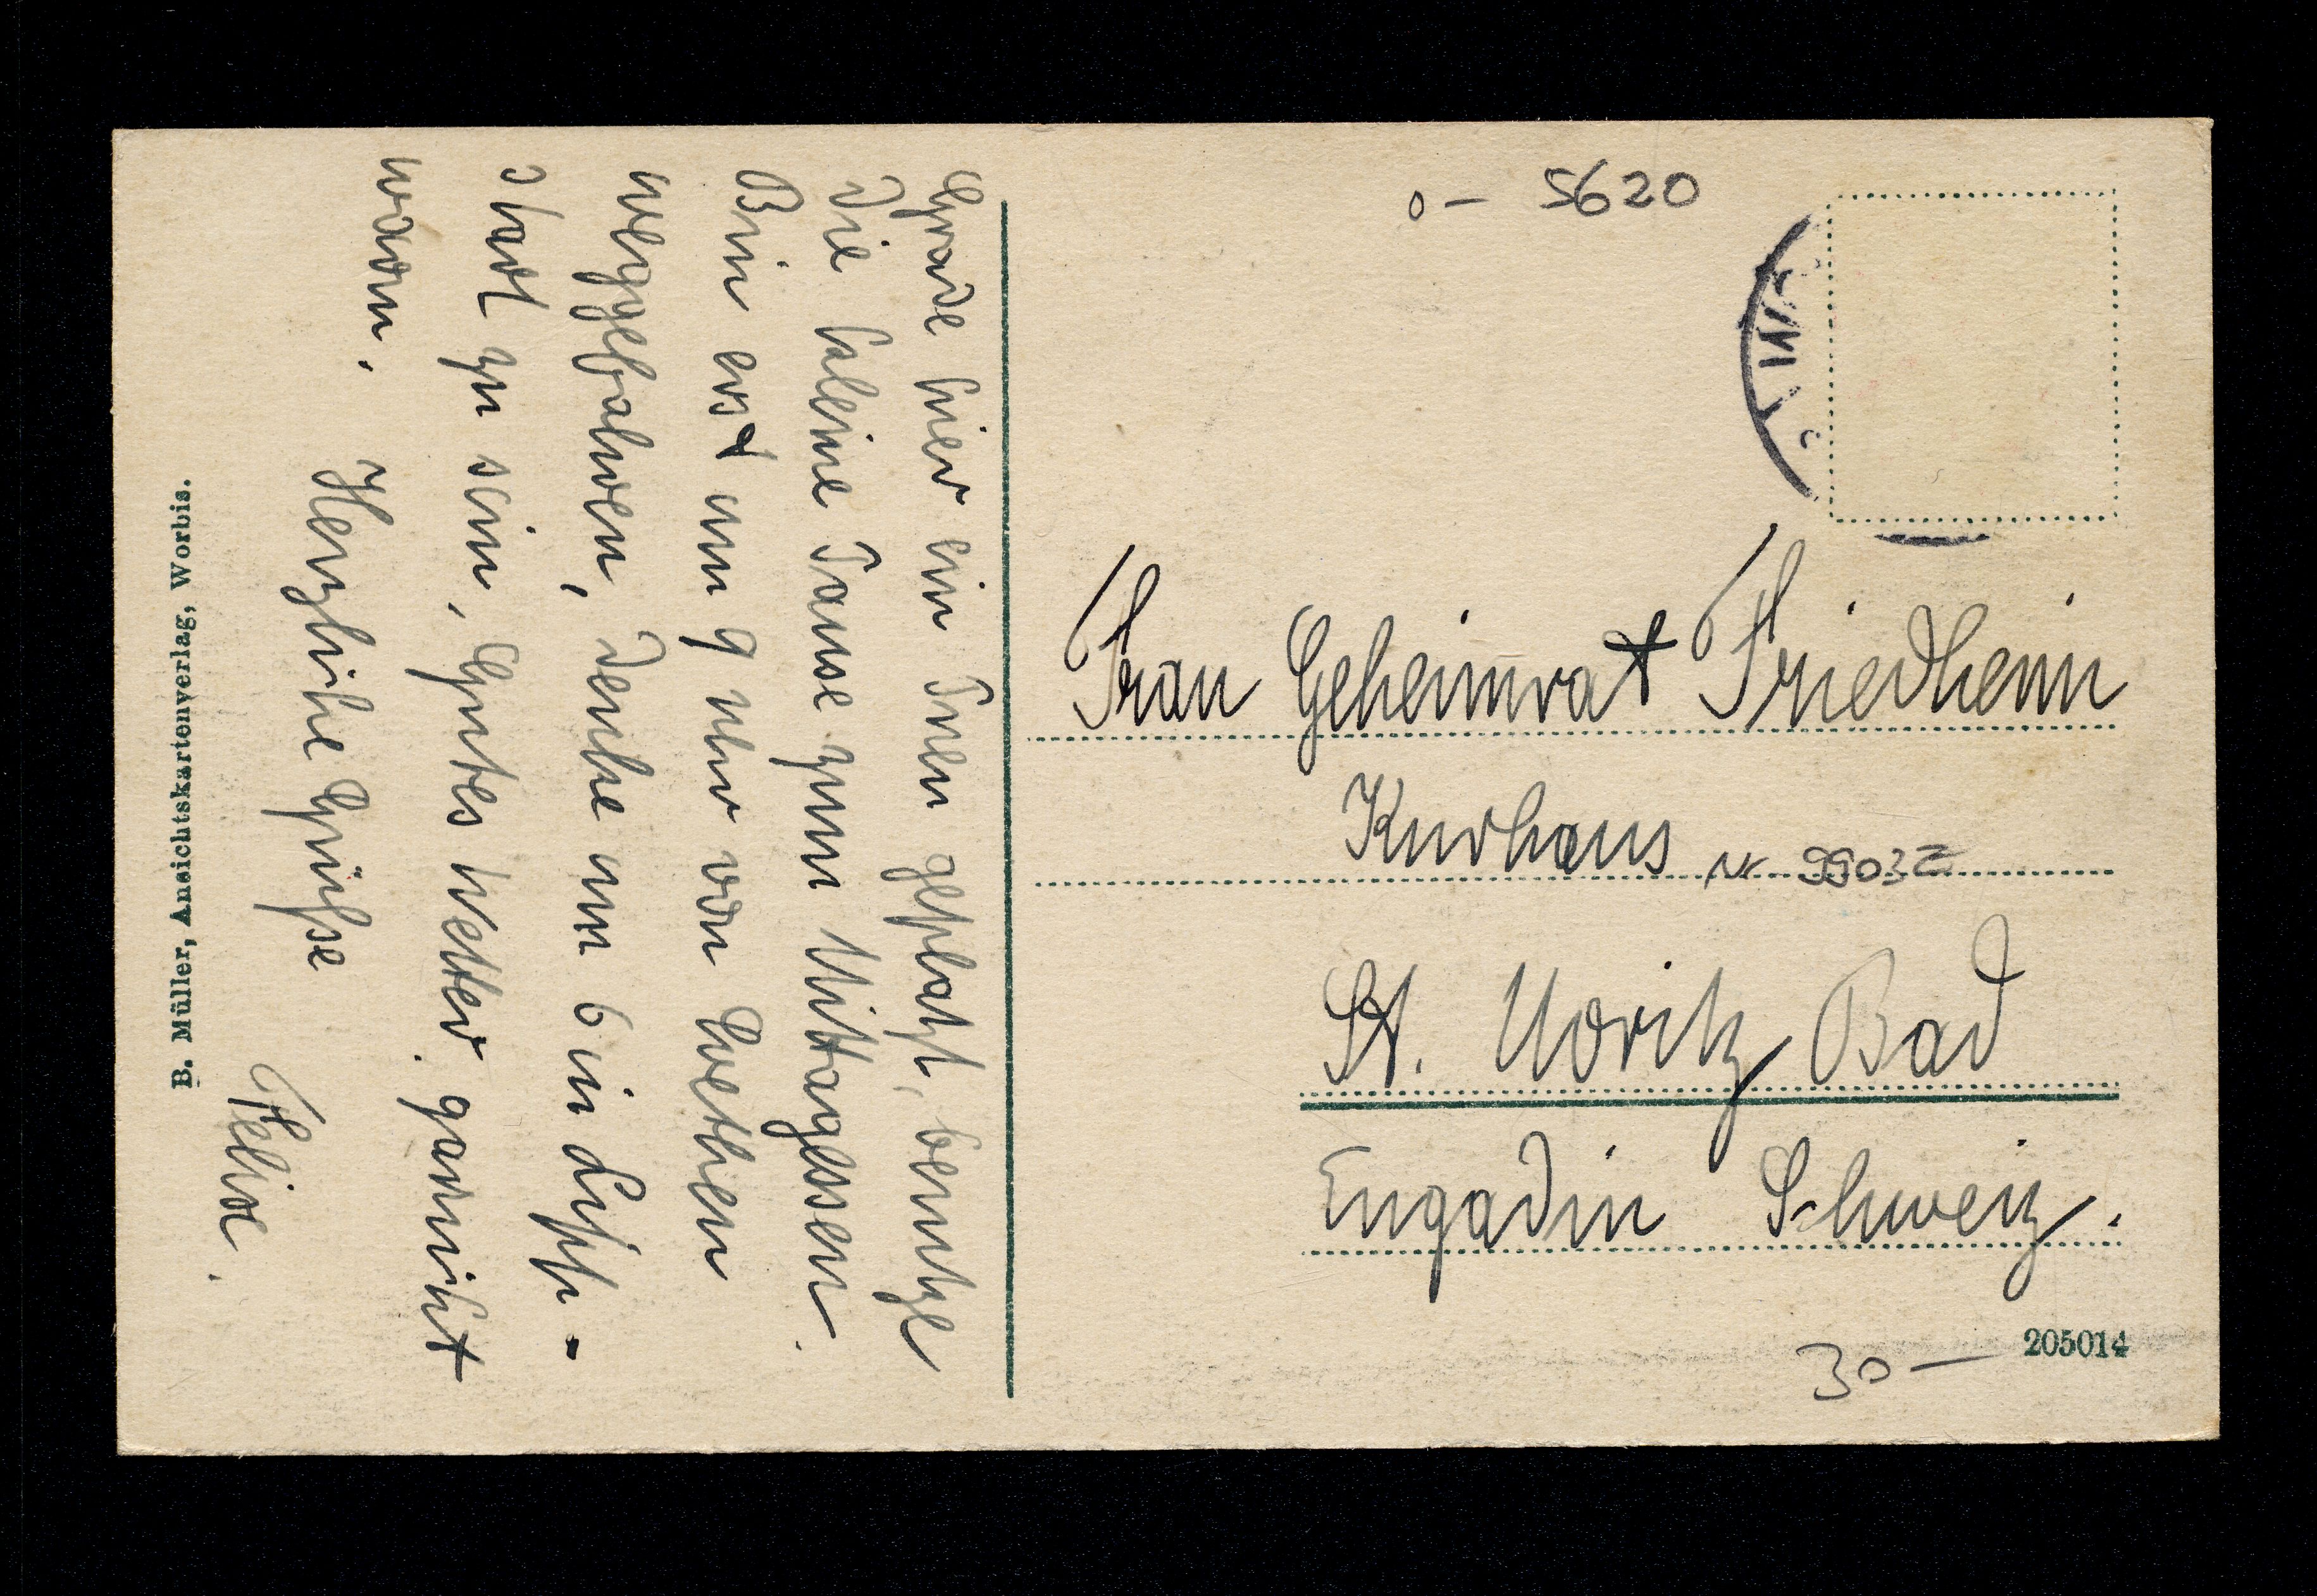 Grade hier ein Tuen geplatzt, benutze
die kaleine Pause zum Mittagessen.
Bin erst um 9 Uhr von
weggefahren, denke um 6 in Eisen-
stadt zu sein, Gutes Wetter. garnicht
warm.
Herzliche Grüsse
Felix.
B. Müller, Ansichtskartenverlag, Worbis.
0- 5620
Frau Geheimrat Friedheim
Kurhaus
N 99032
St. Moritz Bad
Engadin Schweiz.
205014
30 —